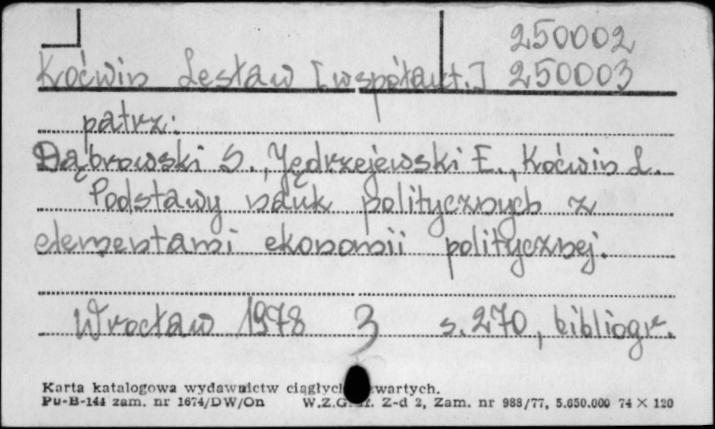 250002
Koćwin Lesław [współaut.] 250003
patrz:
Dąbrowski S., Jędrzejewski E., Koćwin L.
Podstawy nauk politycznych z
elementami ekonomii politycznej.
Wrocław 1978 3 s. 270, bibliogr.
Karta katalogowa wydawnictw ciągłych zwartych.
Pu-B-144 zam. nr 1674/DW/On W.Z.Graf. Z-d 2, Zam. nr 988/77, 5.650.000 74 × 120